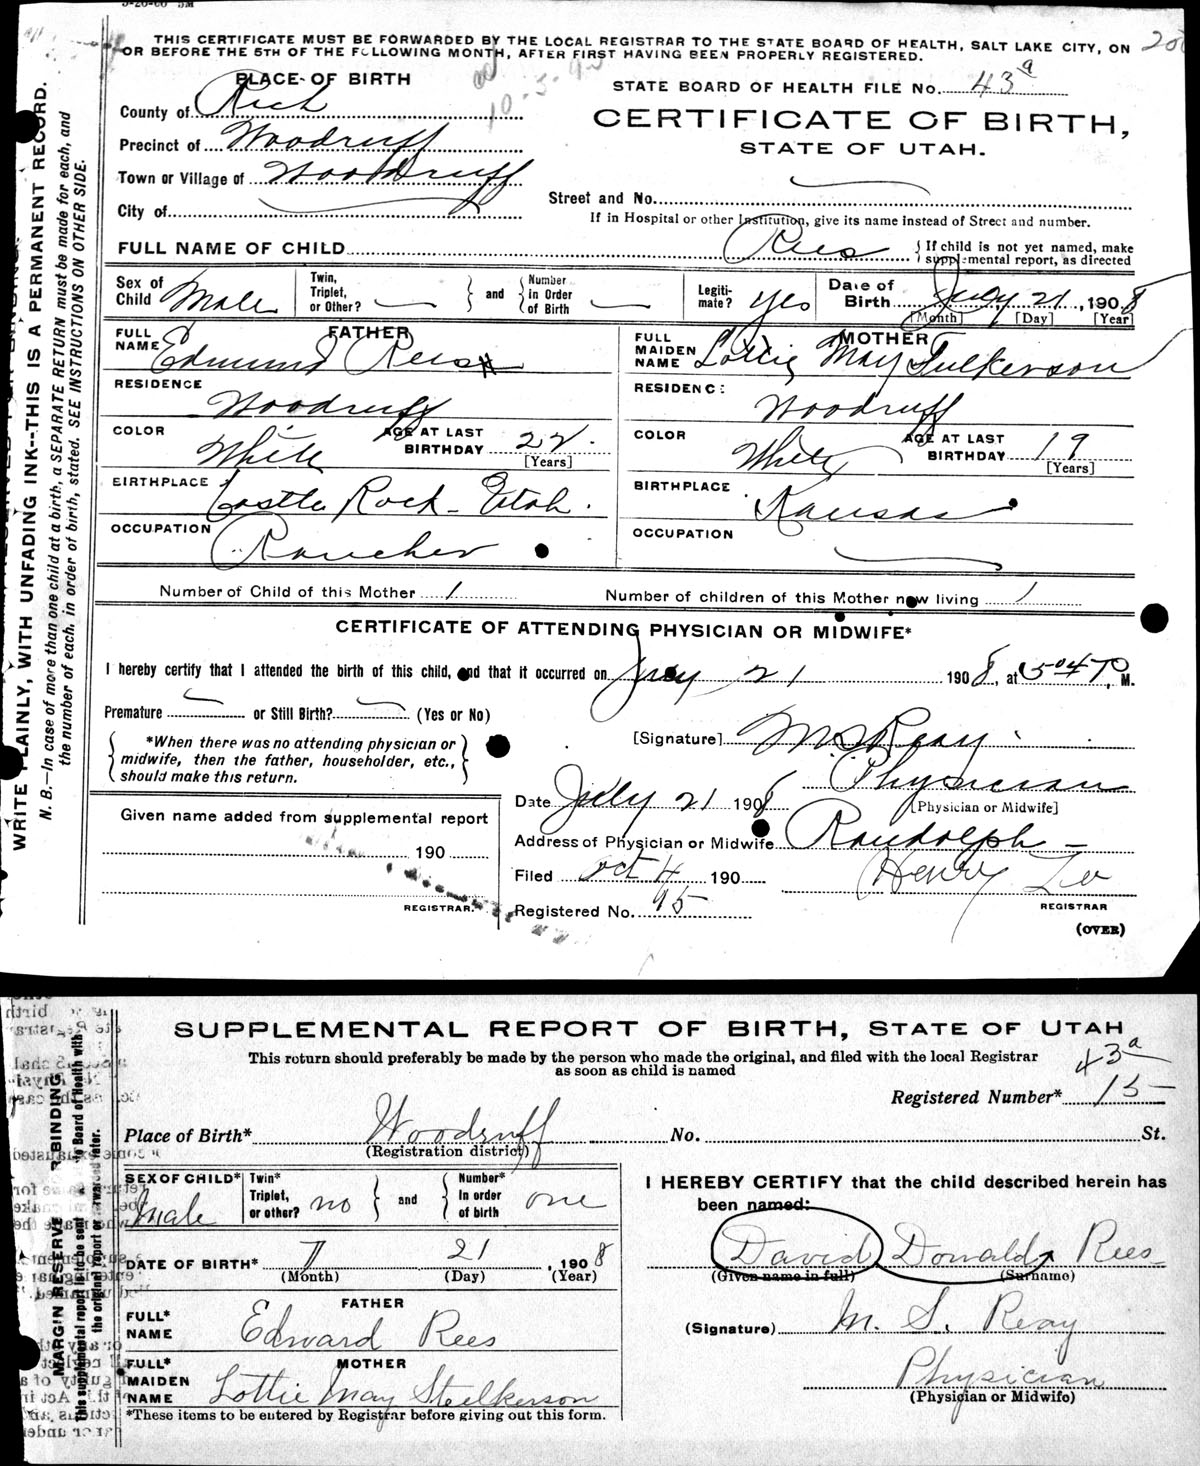 THIS CERTIFICATE MUST BE FORWARDED BY THE LOCAL REGISTRAR TO THE STATE BOARD OF HEALTH, SALT LAKE CITY, ON
OR BEFORE THE 5TH OF THE FOLLOWING MONTH, AFTER FIRST HAVING BEEN PROPERLY REGISTERED.
PLACE OF BIRTH
10-3-90
STATE BOARD OF HEALTH FILE No. 43a
County of Rich
CERTIFICATE OF BIRTH,
STATE OF UTAH.
Precinct of Woodruff
Town or Village of Woodruff
Street and No.
City of
If in Hospital or other Institution, give its name instead of Street and number.
FULL NAME OF CHILD Rees { If child is not yet named, make
supplemental report, as directed
Sex of Child Male
Twin, Triplet, or Other? and { Number in Order of Birth
Legitimate? Yes
Date of Birth July 21, 1908
[Month] [Day] [Year]
FATHER
FULL NAME Edmund Rees
MOTHER
FULL MAIDEN NAME Lottie May Fulkerson
RESIDENCE Woodruff
RESIDENCE Woodruff
COLOR White AGE AT LAST BIRTHDAY 22 [Years]
COLOR White AGE AT LAST BIRTHDAY 19 [Years]
BIRTHPLACE Castle Rock - Utah.
BIRTHPLACE Kansas
OCCUPATION Rancher
OCCUPATION
Number of Child of this Mother 1
Number of children of this Mother now living 1
CERTIFICATE OF ATTENDING PHYSICIAN OR MIDWIFE*
I hereby certify that I attended the birth of this child, and that it occurred on July 21 1908, at P, M.
Premature or Still Birth? (Yes or No)
*When there was no attending physician or
midwife, then the father, householder, etc.,
should make this return.
[Signature] M S Reay
Physician
[Physician or Midwife]
Date July 21 1908
Given name added from supplemental report
190
REGISTRAR.
Address of Physician or Midwife Randolph -
Filed Oct 4 190
Henry Lee
REGISTRAR
Registered No. 15
(OVER)
WRITE PLAINLY, WITH UNFADING INK--THIS IS A PERMANENT RECORD.
N. B.—In case of more than one child at a birth, a SEPARATE RETURN must be made for each, and
the number of each, in order of birth, stated. SEE INSTRUCTIONS ON OTHER SIDE.
SUPPLEMENTAL REPORT OF BIRTH, STATE OF UTAH
This return should preferably be made by the person who made the original, and filed with the local Registrar
as soon as child is named
43a
Registered Number* 15
Place of Birth* Woodruff No. St.
(Registration district)
SEX OF CHILD* Male
Twin* Triplet, or other? no and { Number* In order of birth one
DATE OF BIRTH* 7 21, 1908
(Month) (Day) (Year)
FATHER
FULL* NAME Edward Rees
MOTHER
FULL* MAIDEN NAME Lottie May Steelkerson
*These items to be entered by Registrar before giving out this form.
I HEREBY CERTIFY that the child described herein has
been named:
David Donald Rees
(Given name in full) (Surname)
(Signature) M. S. Reay
Physician
(Physician or Midwife)